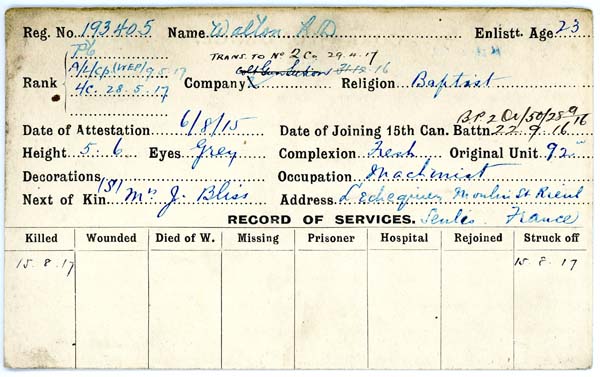 Reg. No. 193405 Name Walton R D Enlistt. Age 23
Pte
TRANS. TO No 2 Co. 29.4.17
A/L/Cpl (WEP) 9.5.17 Colt Gun Section 16
Rank L/C. 28.5.17 Company Religion Baptist
B.P.2 Or/50/25 9/16
Date of Attestation 6/8/15 Date of Joining 15th Can. Battn. 22.9.16
Height 5.6 Eyes Grey Complexion Fresh Original Unit 92nd
Decorations Occupation Machinist
Next of Kin (S) Mrs J. Bliss Address L'Echequier Moulin St Rieul
RECORD OF SERVICES. Senlis France
Killed Wounded Died of W. Missing Prisoner Hospital Rejoined Struck off
15.8.17 15.8.17